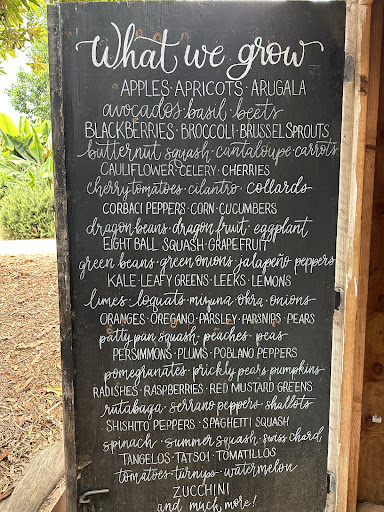 What we grow
APPLES · APRICOTS · ARUGALA
avocados · basil · beets
BLACKBERRIES · BROCCOLI · BRUSSEL SPROUTS
butternut squash · cantaloupe · carrots
CAULIFLOWER · CELERY · CHERRIES
cherry tomatoes · cilantro · collards
CORBACI PEPPERS · CORN · CUCUMBERS
dragon beans · dragon fruit · eggplant
EIGHT BALL SQUASH · GRAPEFRUIT
green beans · green onions · jalapeño peppers
KALE · LEAFY GREENS · LEEKS · LEMONS
limes · loquats · mizuna · okra · onions
ORANGES · OREGANO · PARSLEY · PARSNIPS · PEARS
patty pan squash · peaches · peas
PERSIMMONS · PLUMS · POBLANO PEPPERS
pomegranates · prickly pears · pumpkins
RADISHES · RASPBERRIES · RED MUSTARD GREENS
rutabaga · serrano peppers · shallots
SHISHITO PEPPERS · SPAGHETTI SQUASH
spinach · summer squash · swiss chard
TANGELOS · TATSOI · TOMATILLOS
tomatoes · turnips · watermelon
ZUCCHINI
and much more!